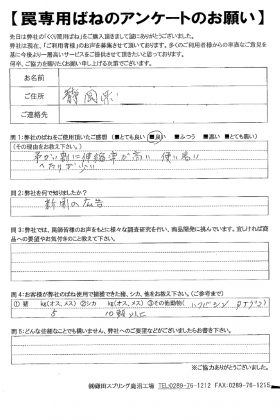 【罠専用ばねのアンケートのお願い】
先日は弊社の「くくり罠用ばね」をご購入頂きまして誠にありがとうございました。
弊社は現在、「ご利用者様」のお声を募集させて頂いております。多くのご利用者様からの率直なご意見を
基に今後より一層高いサービスをご提供させて頂きたいと思っております。
何卒、ご協力を賜りたくお願い申し上げる次第でございます。
お名前
ご住所 静岡県
ご連絡先
問1:弊社のばねを使用頂いたご感想 (■とても良い ■良い ■ふつう ■悪い ■とても悪い)
(その理由をお教え下さい。)
問2:弊社を何で知りましたか?
新聞の広告
問3:弊社では、罠猟師様のご意見をもとに様々な調査研究を行い、商品開発に挑んでいます。宜しければ商
品への要望やお気付きのことをお教え下さい。
問4:お客様が弊社のばね使用で捕獲できた猪、シカ、他をお教え下さい。(ご参考まで)
①猪 kg(オス、メス) ②シカ kg(オス、メス) ③その他動物( ハクビシン
問5:どんな些細なことでも構いません、弊社へのご要望などがございましたらお書き下さい。
ご協力ありがとうございました。
㈱鎌田スプリング鹿沼工場 TEL0289-76-1212 FAX:0289-76-1215